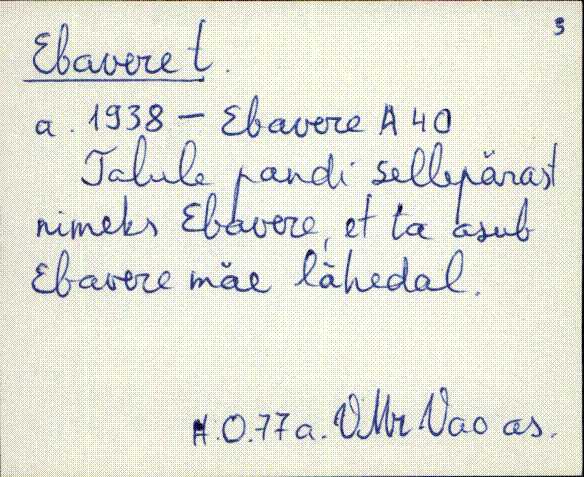 3
Ebavere t.
a. 1938 – Ebavere A 40
Talule pandi sellepärast
nimeks Ebavere, et ta asub
Ebavere mäe lähedal.
H.O.77a. VMr Vao as.